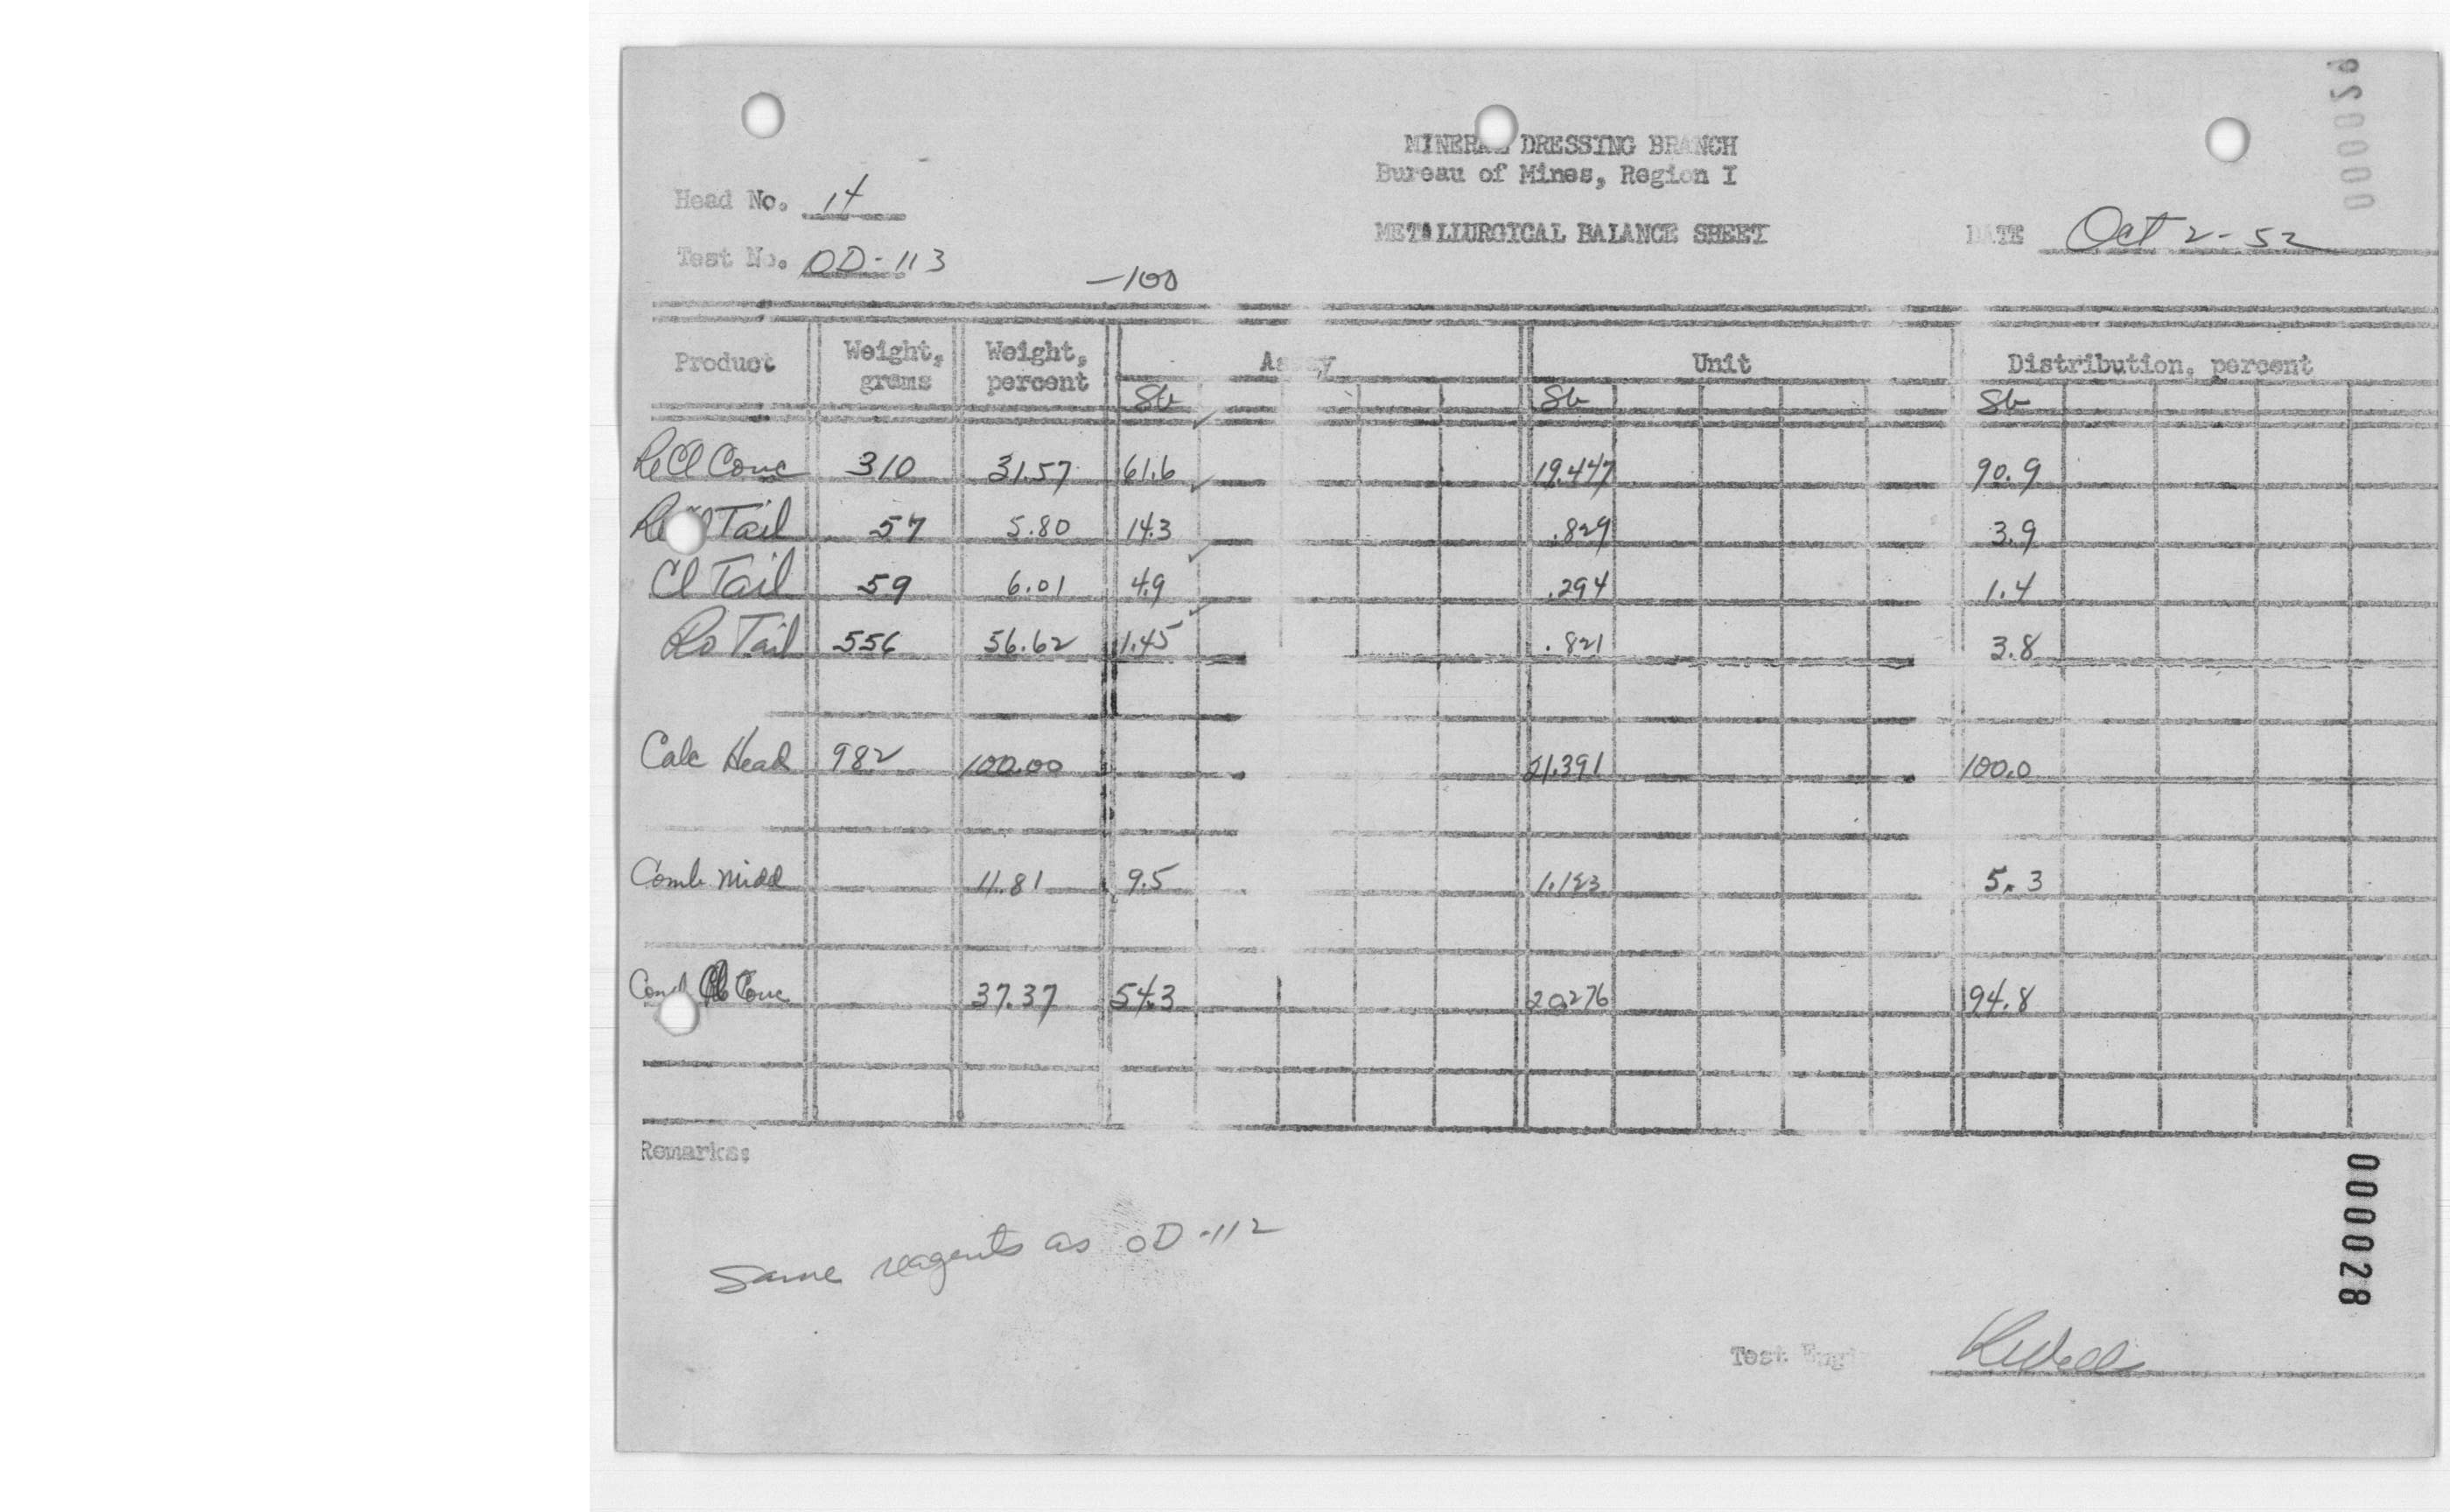 000028
MINERAL DRESSING BRANCH
Bureau of Mines, Region I
Head No. 14
METALLURGICAL BALANCE SHEET
DATE Oct 2-52
Test No. OD-113
-100
Product Weight, grams Weight, percent Assay Unit Distribution, percent
Sb Sb Sb
ReCl Conc 310 31.57 61.6 19.447 90.9
ReCl Tail 57 5.80 14.3 .829 3.9
Cl Tail 59 6.01 4.9 .294 1.4
Ro Tail 556 56.62 1.45 .821 3.8
Calc Head 982 100.00 21.391 100.0
Comb Midd 11.81 9.5 1.123 5.3
Comb Conc 37.37 54.3 20.276 94.8
Remarks:
Same reagents as OD-112
000028
Test Engr